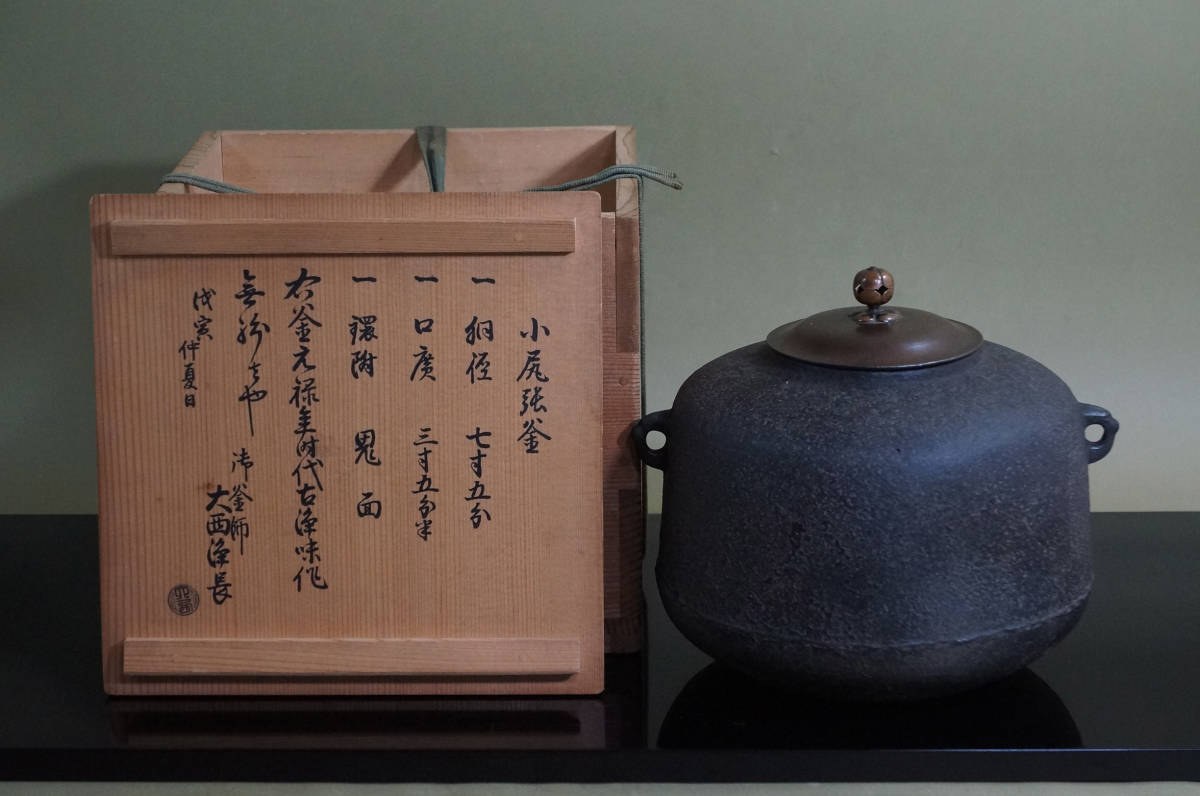 小尻張釜
一 胴径 七寸五分
一 口廣 三寸五分半
一 環附 鬼面
右釜元禄年時代古浄味作
無紛者也 御釜師
大西浄長
戊寅仲夏日